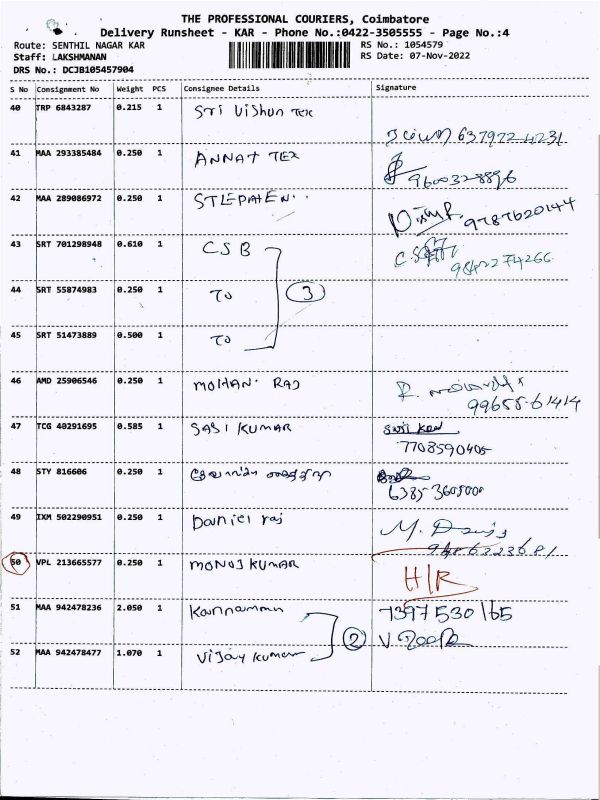 THE PROFESSIONAL COURIERS, Coimbatore
Delivery Runsheet - KAR - Phone No.:0422-3505555 - Page No.:4
Route: SENTHIL NAGAR KAR
RS No.: 1054579
Staff: LAKSHMANAN
RS Date: 07-Nov-2022
DRS No.: DCJB105457904
S No Consignment No Weight PCS Consignee Details Signature
40 TRP 6843287 0.215 1 Sri Vishun Tex
637922 4231
41 MAA 293385484 0.250 1 ANNAI TEX
9600328896
42 MAA 289086972 0.250 1 STEPHEN
9787620144
43 SRT 701298948 0.610 1 CSB
9842274266
44 SRT 55874983 0.250 1 TO 3
45 SRT 51473889 0.500 1 TO
46 AMD 25906546 0.250 1 MOHAN RAJ
R.
99655-61414
47 TCG 40291695 0.585 1 SASI KUMAR
7708590405
48 STY 816606 0.250 1
49 IXM 502290951 0.250 1 Daniel raj M.
50 VPL 213665577 0.250 1 MONOJ KUMAR H/R
51 MAA 942478236 2.050 1 Kannamma 7397530165
2 V
52 MAA 942478477 1.070 1 Vijay Kumar